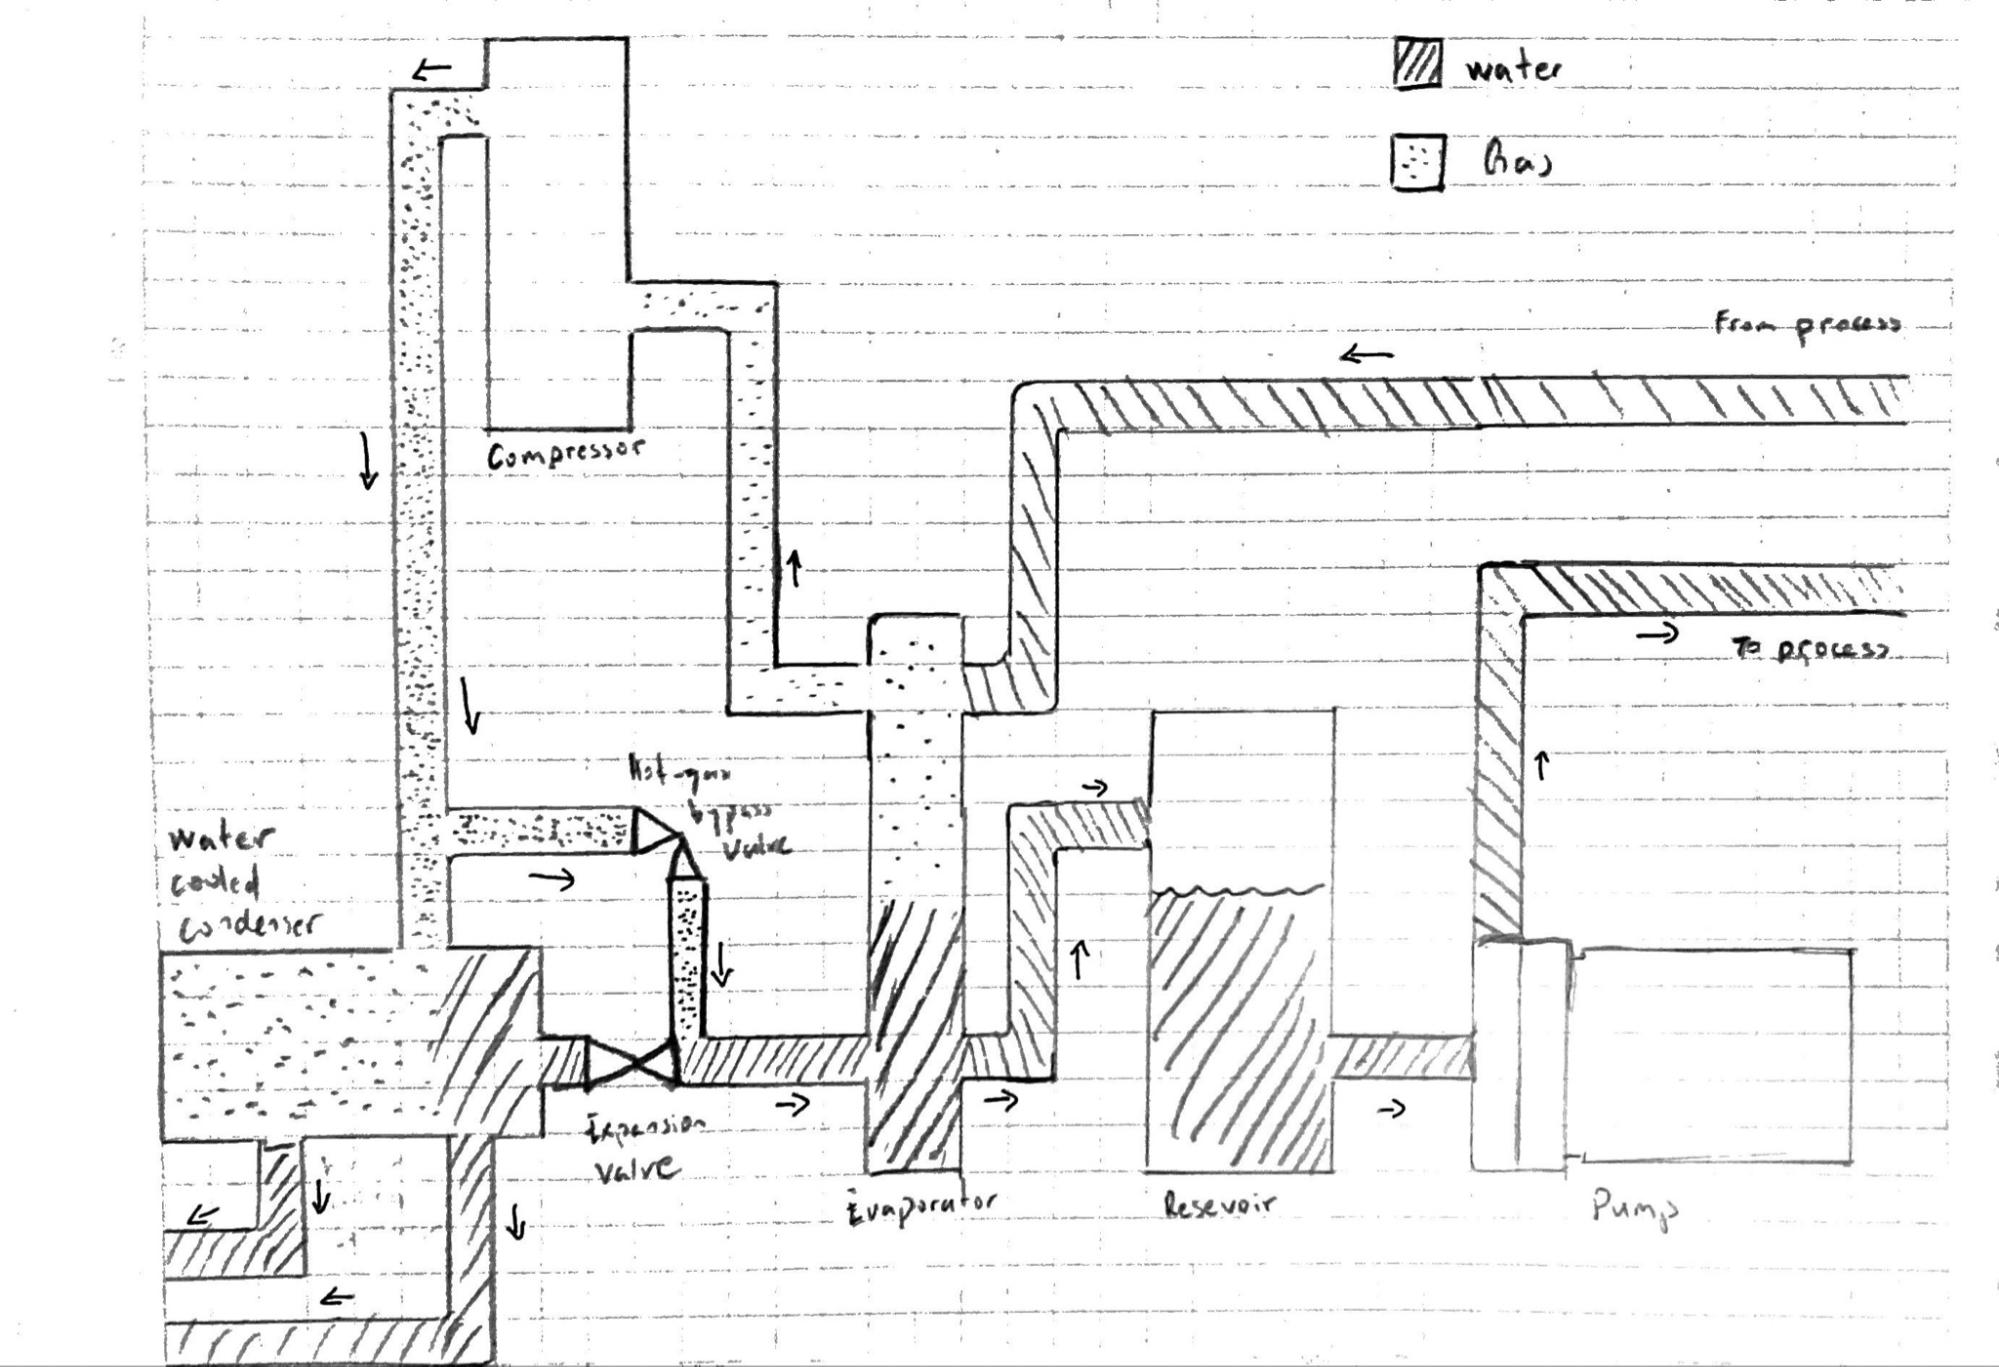 water
Gas
From process
Compressor
To process
Hot-gas
bypass
Valve
Water
cooled
condenser
Expansion
Valve
Evaporator
Resevoir
Pump